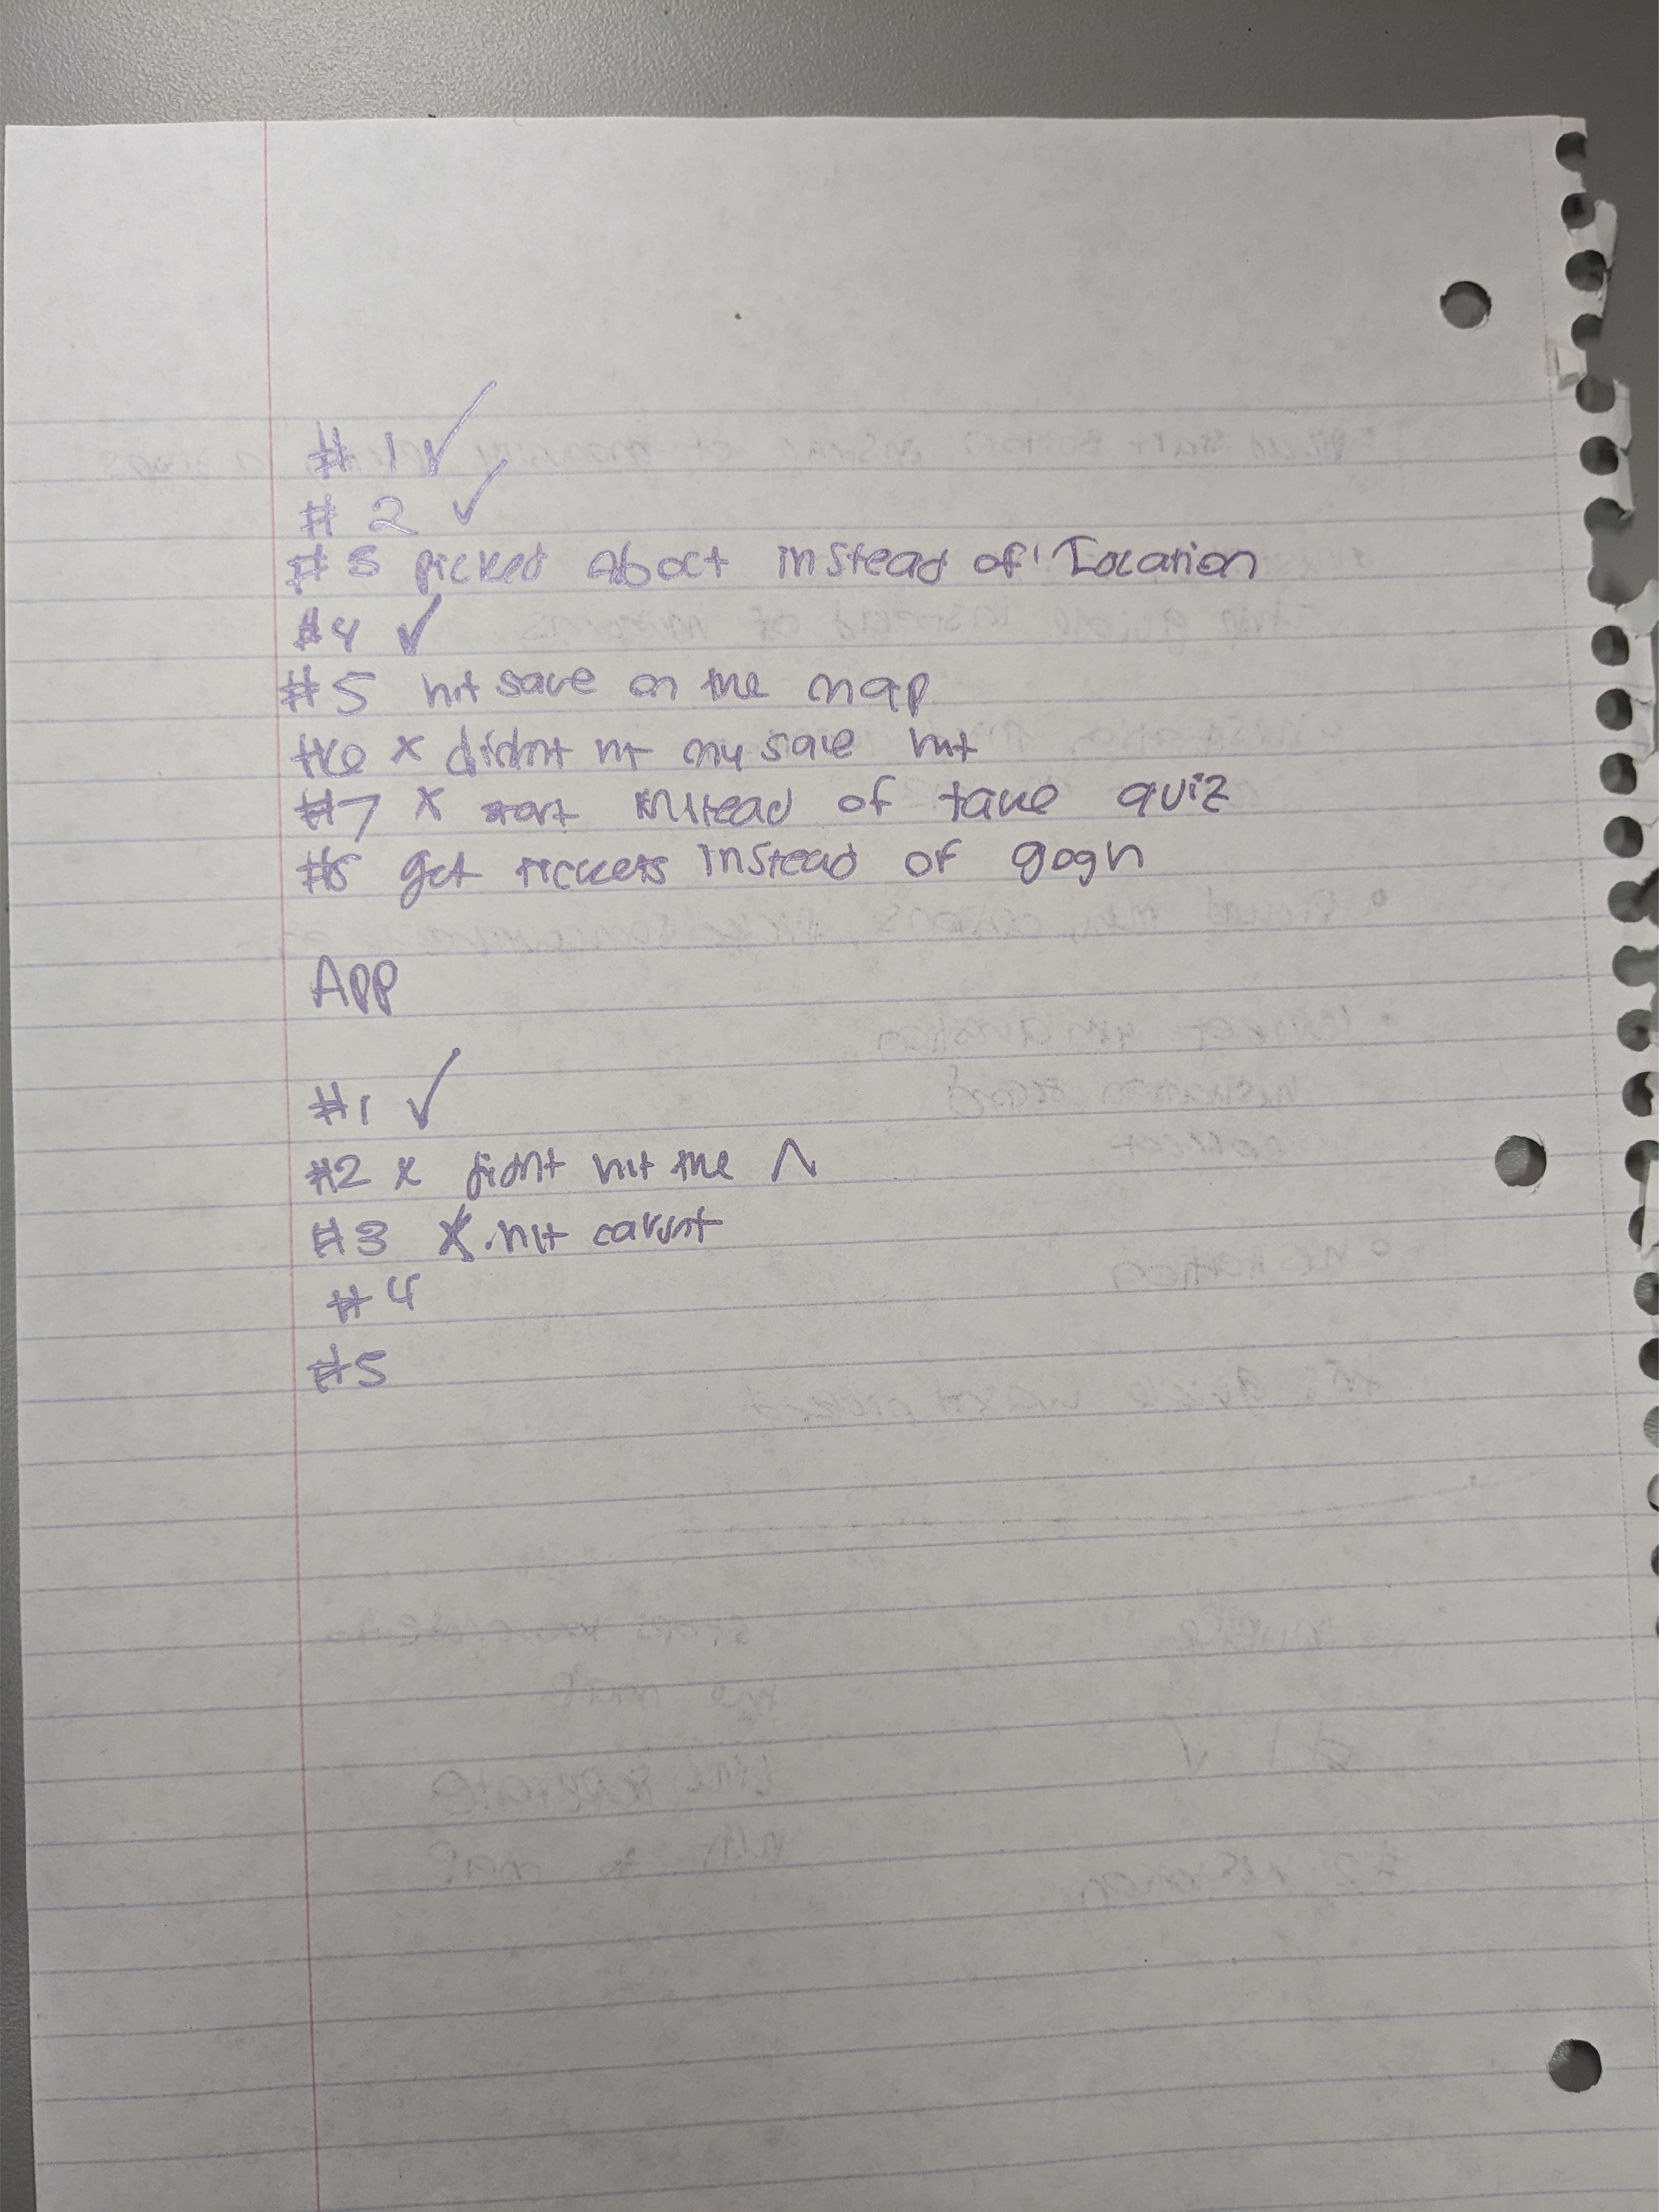 #1 ✓
#2 ✓
#3 picked About instead of Location
#4 ✓
#5 hit save on the map
#6 x didnt hit my save hit
#7 x start instead of take quiz
#8 get tickets instead of gogh
App
#1 ✓
#2 x didnt hit the ^
#3 x hit
#4
#5